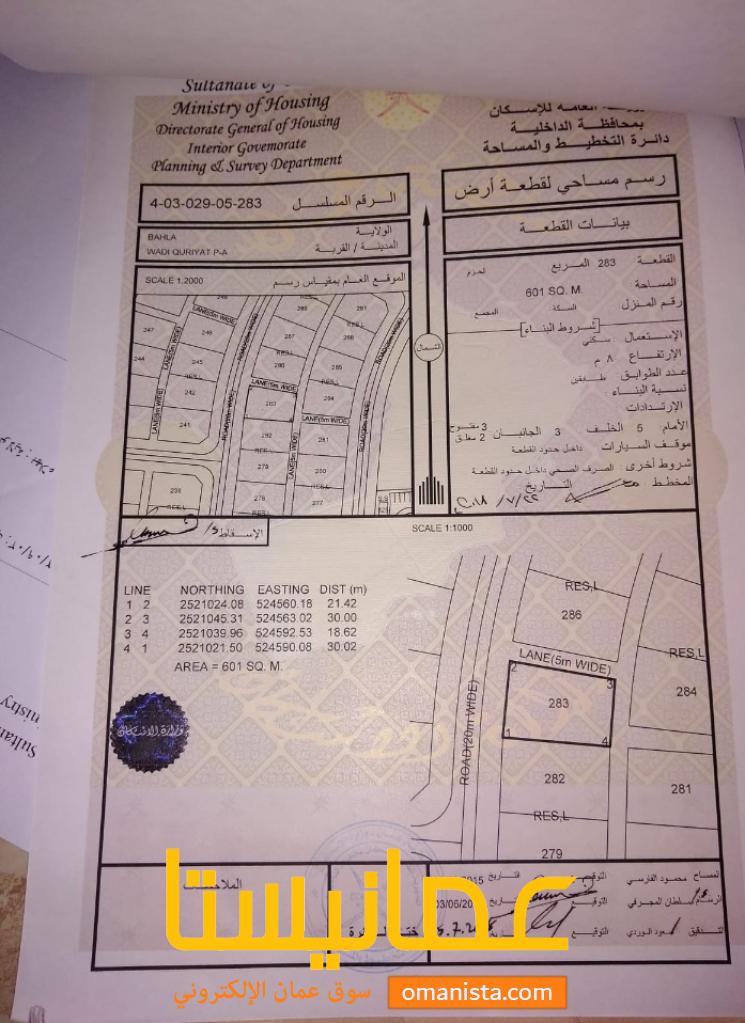 Sultanate of
Ministry of Housing
Directorate General of Housing
Interior Govemorate
Planning & Survey Department
العامة للإسكان
بمحافظة الداخلية
دائرة التخطيط والمساحة
رسم مساحي لقطعة أرض
4-03-029-05-283 الرقم المسلسل
بيانات القطعة
BAHLA الولاية
WADI QURIYAT P-A المدينة / القرية
القطعة 283 المربع
المساحة 601 SQ. M.
رقم المنزل السكة المجمع
شروط البناء
الإستعمال : سكني
الإرتفاع ٨ م
عدد الطوابق طابقين
نسبة البناء :
الإرتدادات
الأمام: 5 الخلف 3 الجانبان 3 مفتوح
2 مغلق
موقف السيارات داخل حدود القطعة
شروط أخرى : الصرف الصحي داخل حدود القطعة
المخطط
التاريخ
SCALE 1:2000 الموقع العام بمقياس رسم
247
246
244
245
242
241
236
286
287
285
284
283
282
281
280
279
278
277
LANE(5m WIDE)
ROAD(20m WIDE)
RES,L
الشمال
الإسقاط
SCALE 1:1000
LINE NORTHING EASTING DIST (m)
1 2 2521024.08 524560.18 21.42
2 3 2521045.31 524563.02 30.00
3 4 2521039.96 524592.53 18.62
4 1 2521021.50 524590.08 30.02
AREA = 601 SQ. M.
RES,L
286
LANE(5m WIDE)
RES,L
2
3
284
283
1
4
ROAD(20m WIDE)
282
281
RES,L
279
وزارة الإسكان
الملاحظات
المساح محمود الفارسي التوقيع التاريخ 2015
الرسام سلطان المجرفي التوقيع 03/06/20
التدقيق التوقيع
عمانيستا
سوق عمان الإلكتروني omanista.com